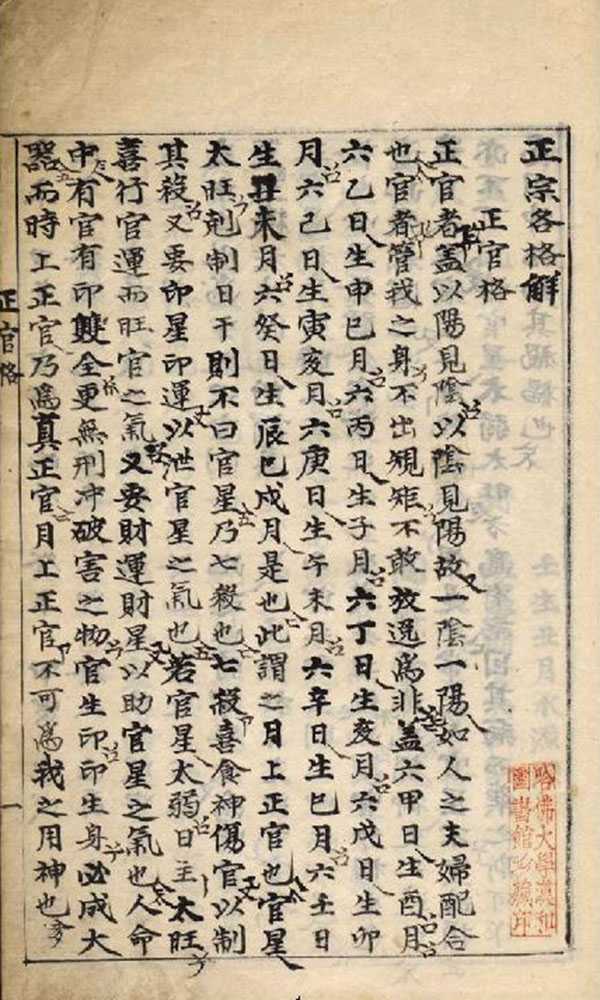 正宗各格解
正官格
正官者盖以陽見陰以陰見陽故一陰一陽如人之夫婦配合
也官者管我之身不出規矩不敢放逸為非盖六甲日生酉月
六乙日生申巳月六丙日生子月六丁日生亥月六戊日生卯
月六己日生寅亥月六庚日生午未月六辛日生巳月六壬日
生丑未月六癸日生辰巳戌月是也此謂之月上正官也官星
太旺剋制日干則不曰官星乃七殺也七殺喜食神傷官以制
其殺又要印星印運以泄官星之氣也若官星太弱日主太旺
喜行官運而旺官之氣又要財運財星以助官星之氣也人命
中有官有印雙全更無刑冲破害之物官生印印生身必成大
器而時上正官乃為真正官月上正官不可為我之用神也
正官格
一
哈佛大學漢和
圖書館珍藏印